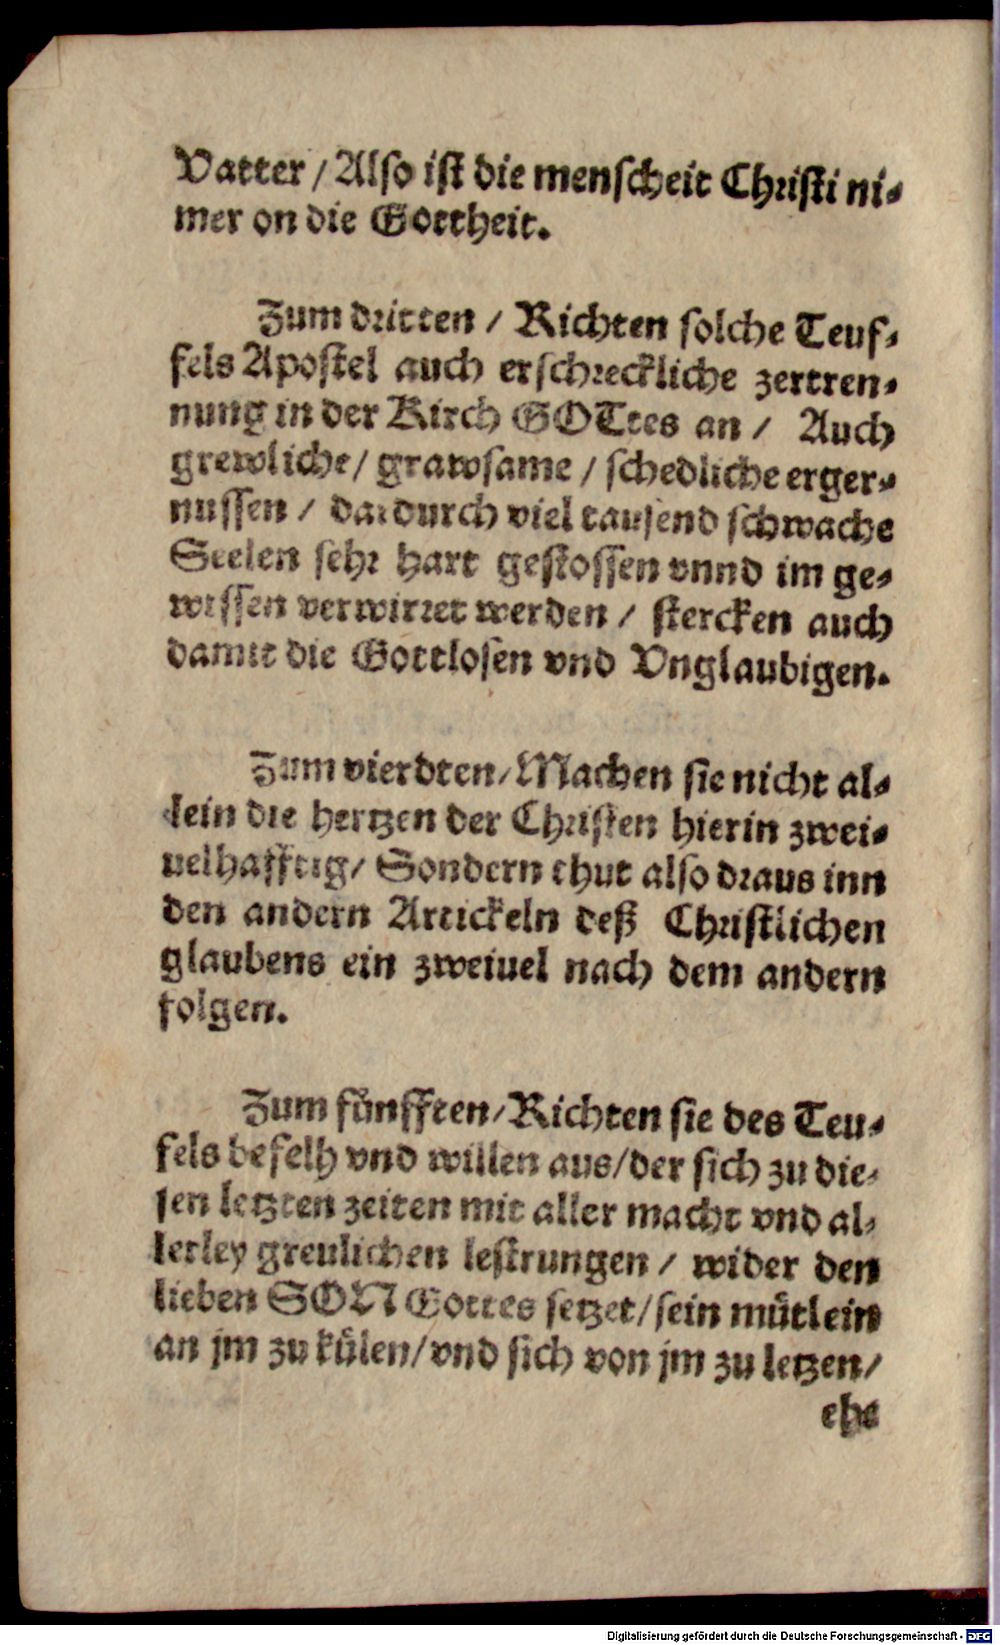 Vatter / Also ist die menscheit Christi ni-
mer on die Gottheit.
Zum dritten / Richten solche Teuf-
fels Apostel auch erschreckliche zertren-
nung in der Kirch GOTtes an / Auch
grewliche / grawsame / schedliche erger-
nussen / dardurch viel tausend schwache
Seelen sehr hart gestossen vnnd im ge-
wissen verwirret werden / stercken auch
damit die Gottlosen vnd Vnglaubigen.
Zum vierdten / Machen sie nicht al-
lein die hertzen der Christen hierin zwei-
uelhafftig / Sondern thut also draus inn
den andern Artickeln deß Christlichen
glaubens ein zweiuel nach dem andern
folgen.
Zum fünfften / Richten sie des Teu-
fels befelh vnd willen aus / der sich zu die-
sen letzten zeiten mit aller macht vnd al-
lerley greulichen lestrungen / wider den
lieben SON Gottes setzet / sein mütlein
an jm zu külen / vnd sich von jm zu letzen /
ehe
Digitalisierung gefördert durch die Deutsche Forschungsgemeinschaft - DFG